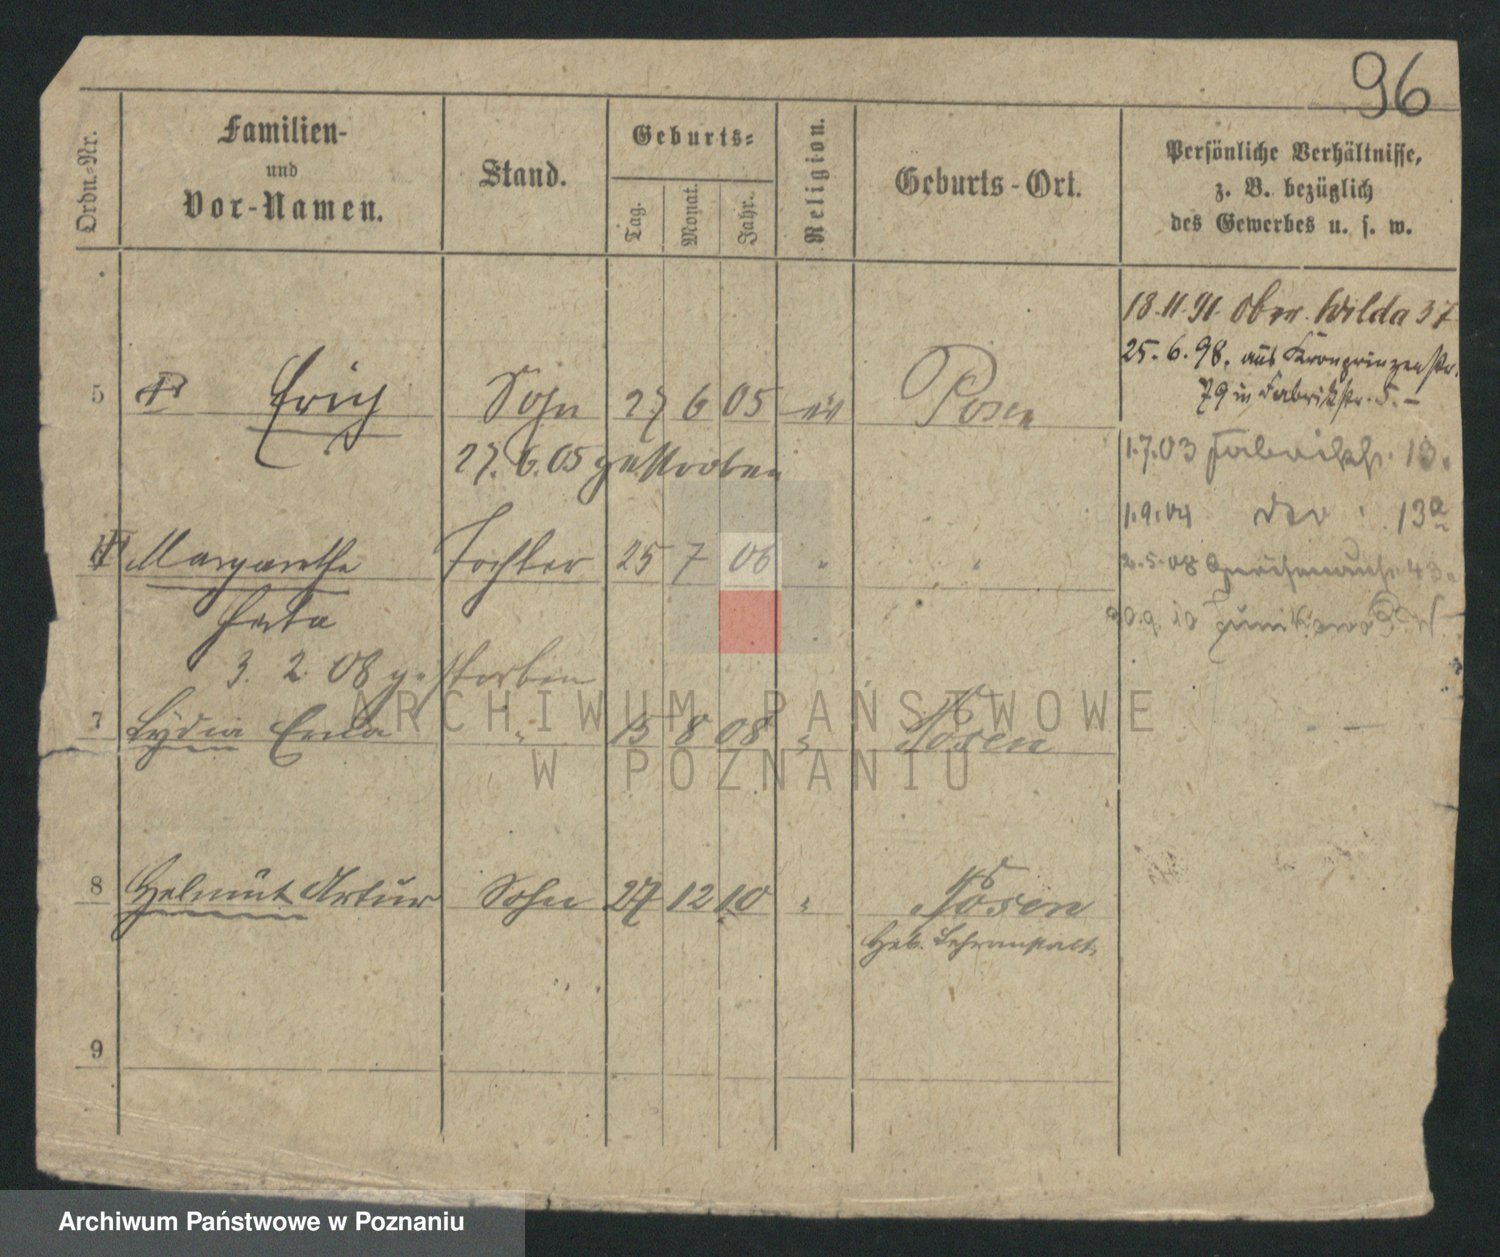 96
Ordn.-Nr.
Familien-
und
Vor-Namen.
Stand.
Geburts-
Tag.
Monat.
Jahr.
Religion.
Geburts-Ort.
Persönliche Verhältnisse,
z. B. bezüglich
des Gewerbes u. s. w.
18.11.91. Ober. Wilda 37
25.6.98. aus Kronprinzenstr.
79 in Fabrikstr. 5. –
5 Erich Sohn 27 6 05 ev Posen
27.6.05 gestorben
1.7.03 Fabrikstr. 13.
1.9.04 13a
Margarethe Tochter 25 7 06 " "
Herta
2.5.08 43a
30.9.10 Junikowo
3. 2. 08 gestorben
7 Lydia Erika " 15 8 08 " Posen
8 Helmut Artur Sohn 27 12 10 " Posen
Heb. Lehranstalt
9
ARCHIWUM PAŃSTWOWE
W POZNANIU
Archiwum Państwowe w Poznaniu